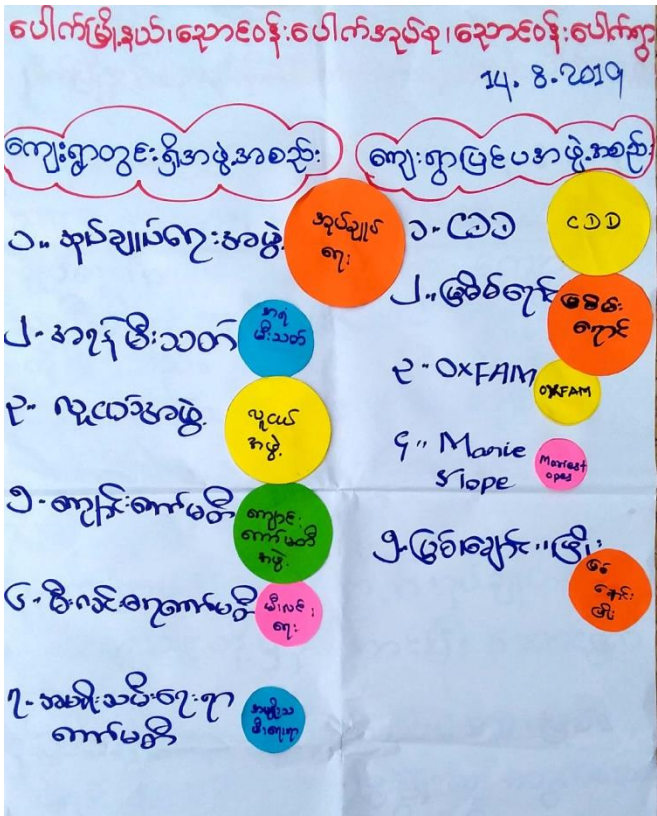 ပေါက်မြို့နယ်၊ညောင်ဝန်းပေါက်အုပ်စု၊ညောင်ဝန်းပေါက်ရွာ
14. 8. 2019
ကျေးရွာတွင်းရှိအဖွဲ့အစည်း
၁။ အုပ်ချုပ်ရေးအဖွဲ့
အုပ်ချုပ်
ရေး
၂- အရန်မီးသတ်
အရံ
မီးသတ်
၃။ လူငယ်အဖွဲ့
လူငယ်
အဖွဲ့
၅- ကျောင်းကော်မတီ
ကျောင်း
ကော်မတီ
အဖွဲ့
၆- မီးလင်းရေးကော်မတီ
မီးလင်း
ရေး
၇- အမျိုးသမီးရေးရာ
ကော်မတီ
အမျိုးသ
မီးရေးရာ
ကျေးရွာပြင်ပအဖွဲ့အစည်း
၁- CDD
CDD
၂။ မြစိမ်းရောင်
မြစိမ်း
ရောင်
၃- OXFAM
OXFAM
၄။ Marie
Slope
Mariest
opes
၅- မြစ်ချောင်း